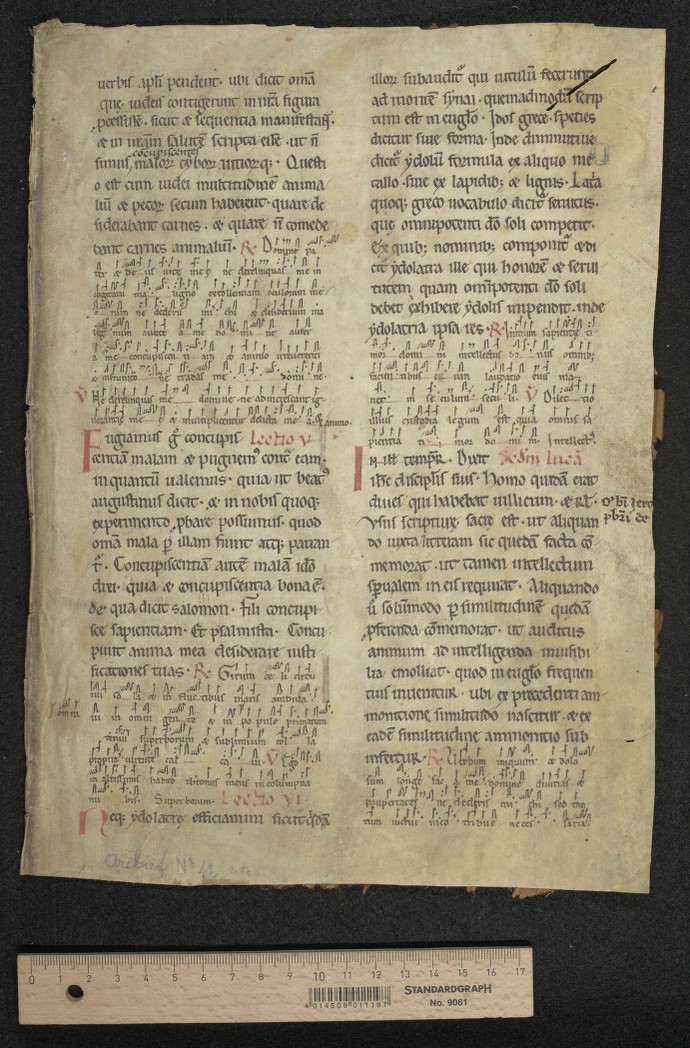 uerbis apłi pendent· ubi dicit om̄a
que iudeis contigerunt in
p̱cessisse· sicut & sequentia manifestat
& in salutē scripta esse· ut n̄
simus
concupiscentes
malorͬ cyborͬ uitiorq;· Questi
o est cum iudei multitudinē anima
liū & pecorͬ secum haberent· quare de
siderabant carnes· & quare n̄ comede
bant carnes animaliū· R̷ Domine pa
ter & de us uite me e ne derelinquas me in
cogitatu ma ligno extollentiam oculorum me
o rum ne dederis mi chi & desiderium ma
lig num auerte a me do mi ne aufer
a me concupiscen ti am & animo irreuerenti
& infrunito ne tradas me· domi ne·
V̷ Ne derelinquas me domine ne adincrescant ig
norantie me e & multiplicentur delicta me a· & animo·
Fugiamus g̊ concupis Lectio v
centiam malam & pugnemꝰ cont̃ eam·
in quantū ualemus· quia ut beatꝰ
augustinus dicit· & in nobis quoq;
experimento p̱bare possumus· quod
om̄a mala p̱ illam fiunt atq; patran
t̃· Concupiscentiā autē malam ideo
dixi· quia & concupiscentia bona ē·
de qua dicit salomon· Fili concupi
sce sapientiam· Et psalmista· Concu
piuit anima mea desiderare iusti
ficationes tuas· R̷ Girum ce li circu
iui so la & in fluc tibus maris ambula ui
in omni gen te & in po pulo primatum
tenui superborum & sublimium col la
propria uirtute cal ca ui· V̷ Ego
in altissimis habito & thronus meus in columpna
nu bis· Superborum· Lectio VI
Neq; ydolatre efficiamini sicut q̇dā
Archief N° 42
illorͬ subaudit̃ qui uitulū fecerunt
ad montē synai· quemadmodū scrip
tum est in euḡlo· Idos grece species
dicitur siue forma· Inde diminutiue
dicit̃ ydolū formula ex aliquo me
tallo siue ex lapidib; & lignis· Latͬa
quoq; greco uocabulo dicit̃ seruitus·
que omnipotenti dō soli competit·
Ex quib; nominib; componit̃ & di
cit̃ ydolatra ille qui honorē & serui
tutem quam omnipotenti dō soli
debet exhibere ydolis impendit· inde
ydolatria ipsa res· R̷ Initium sapientie ti
mor domi ni intellectus bo nus omnib;
facien tibus e um laudatio eius ma
net in se culum secu li· V̷ Dilectio
illius custodia legum est quia omnis sa
pientia ti mor do mi ni Intellectꝰ·
In ill̄ tempr̄· Dixit Scdm lucā
ih̄c discipl̄is suis· Homo quidā erat
diues qui habebat uillicum· & rl̄·
Vsus scripture sacre est· ut aliquan
do iuxta litteram sic quedā facta cō
memorat· ut tamen intellectum
sp̄ualem in eis requirat· Aliquando
u̇ solūmodo p̱ similitudinē quedā
p̱ferenda cōmemorat· ut auditus
animum ad intelligenda inuisibi
lia emolliat· quod in euḡlo frequen
tius inuenitur· ubi ex precedenti am
monitione similitudo nascitur· & ex
eadē similitudine ammonitio sub
infertur· R̷ Uerbum iniquum & dolo
sum longe fac a me domine diuitias &
paupertates ne dederis mi chi sed tan
tum uictui meo tribue neces saria·